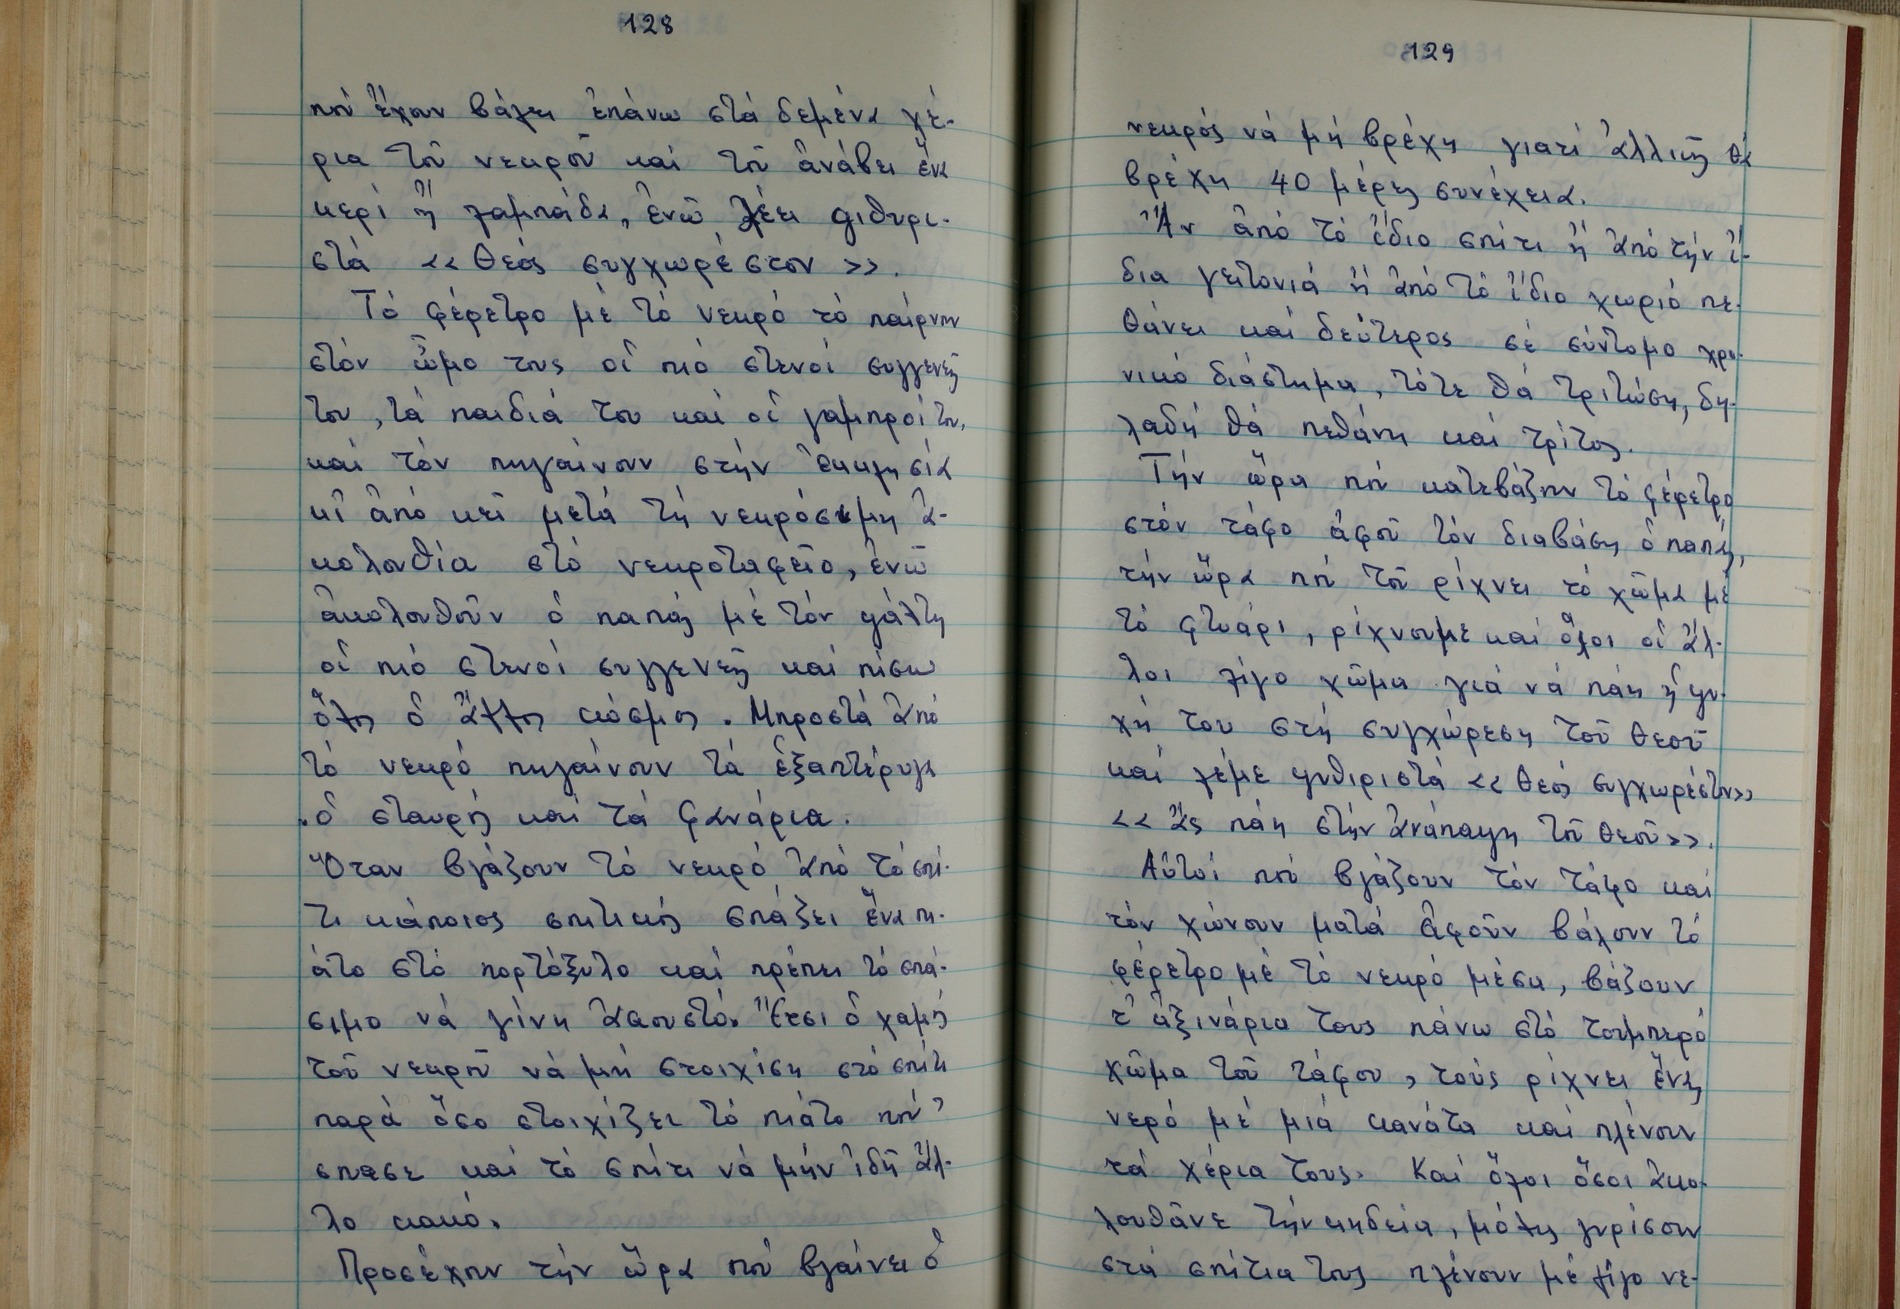 128
πού ἔχουν βάλει ἐπάνω στά δεμένα χέ-
ρια τοῦ νεκροῦ καί τοῦ ἀνάβει ἕνα
κερί ἤ λαμπάδα, ἐνῶ λέει ψιθυρι-
στά «Θεός συγχωρέστον».
Τό φέρετρο μέ τό νεκρό τό παίρνουν
στόν ὦμο τους οἱ πιό στενοί συγγενεῖς
του, τά παιδιά του καί οἱ γαμπροί του,
καί τόν πηγαίνουν στήν ἐκκλησία
κι ἀπό κεῖ μετά τή νεκρόσιμη ἀ-
κολουθία στό νεκροταφεῖο, ἐνῶ
ἀκολουθοῦν ὁ παπάς μέ τόν ψάλτη
οἱ πιό στενοί συγγενεῖς καί πίσω
ὅλος ὁ ἄλλος κόσμος. Μπροστά ἀπό
τό νεκρό πηγαίνουν τά ἑξαπτέρυγα
ὁ σταυρός καί τά φανάρια.
Ὅταν βγάζουν τό νεκρό ἀπό τό σπί-
τι κάποιος σπιτικός σπάζει ἕνα πι-
άτο στό πορτόξυλο καί πρέπει τό σπά-
σιμο νά γίνη ἀκουστό. Ἔτσι ὁ χαμός
τοῦ νεκροῦ νά μή στοιχίση στό σπίτι
παρά ὅσο στοιχίζει τό πιάτο πού
σπασε καί τό σπίτι νά μήν ἰδῆ ἄλ-
λο κακό.
Προσέχουν τήν ὥρα πού βγαίνει ὁ
129
νεκρός νά μή βρέχη γιατί ἀλλιῶς θά
βρέχη 40 μέρες συνέχεια.
Ἄν ἀπό τό ἴδιο σπίτι ἤ ἀπό τήν ἴ-
δια γειτονιά ἤ ἀπό τό ἴδιο χωριό πε-
θάνει καί δεύτερος σέ σύντομο χρο-
νικό διάστημα, τότε θά τριτώση, δη-
λαδή θά πεθάνη καί τρίτος.
Τήν ὥρα πού κατεβάζουν τό φέρετρο
στόν τάφο ἀφοῦ τόν διαβάση ὁ παπάς,
τήν ὥρα πού τοῦ ρίχνει τό χῶμα μέ
τό φτυάρι, ρίχνουμε καί ὅλοι οἱ ἄλ-
λοι λίγο χῶμα γιά νά πάη ἡ ψυ-
χή του στή συγχώρεση τοῦ Θεοῦ
καί λέμε ψυθιριστά «Θεός συγχωρέστον»
«Ἄς πάη στήν ἀνάπαψη τοῦ Θεοῦ».
Αὐτοί πού βγάζουν τόν τάφο καί
τόν χώνουν ματά ἀφοῦν βάλουν τό
φέρετρο μέ τό νεκρό μέσα, βάζουν
τ' ἀξινάρια τους πάνω στό τουμπερό
χῶμα τοῦ τάφου, τούς ρίχνει ἕνας
νερό μέ μιά κανάτα καί πλένουν
τά χέρια τους. Καί ὅλοι ὅσοι ἀκο-
λουθᾶνε τήν κηδεία, μόλις γυρίσουν
στά σπίτια τους πλένουν μέ λίγο νε-